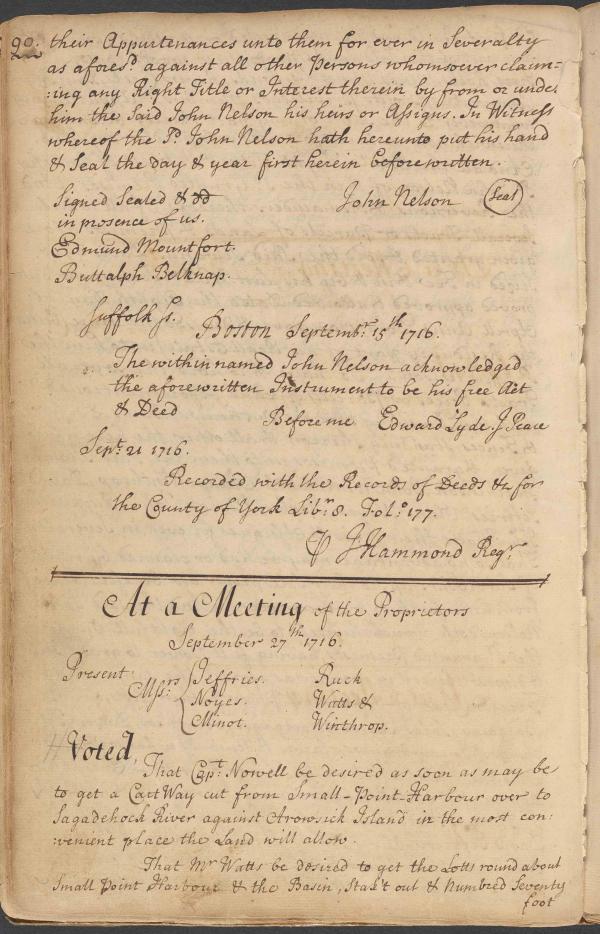 90. their Appurtenances unto them for ever in Severalty
as afores.d against all other Persons whomsoever claim=
:ing any Right Title or Interest therein by from or under
him the Said John Nelson his heirs or Assigns. In Witness
whereof the S.d John Nelson hath hereunto put his hand
& Seal the day & year first herein before written.
Signed Sealed & dd John Nelson Seal
in presence of us.
Edmund Mountfort.
Buttalph Belknap.
Suffolk Ss.
Boston Septemb.r 15th 1716.
The within named John Nelson acknowledged
the aforewritten Instrument to be his free Act
& Deed Before me Edward Lyde. J Peace
Sep.t 21 1716.
Recorded with the Records of Deeds &c for
the County of York Lib.r 8. Fol.o 177.
J Hammond Reg.r
At a Meeting of the Proprietors
September 27th 1716.
Present Mss.rs Jeffries. Ruck
Noyes. Watts &
Minot. Winthrop.
Voted,
That Cap.t Nowell be desired as soon as may be
to get a Cart Way cut from Small-Point-Harbour over to
Sagadehock River against Arowsick Island in the most con:
:venient place the Land will allow.
That Mr Watts be desired to get the Lotts round about
Small Point Harbour & the Basin, Stak't out & Numbred Seventy
foot